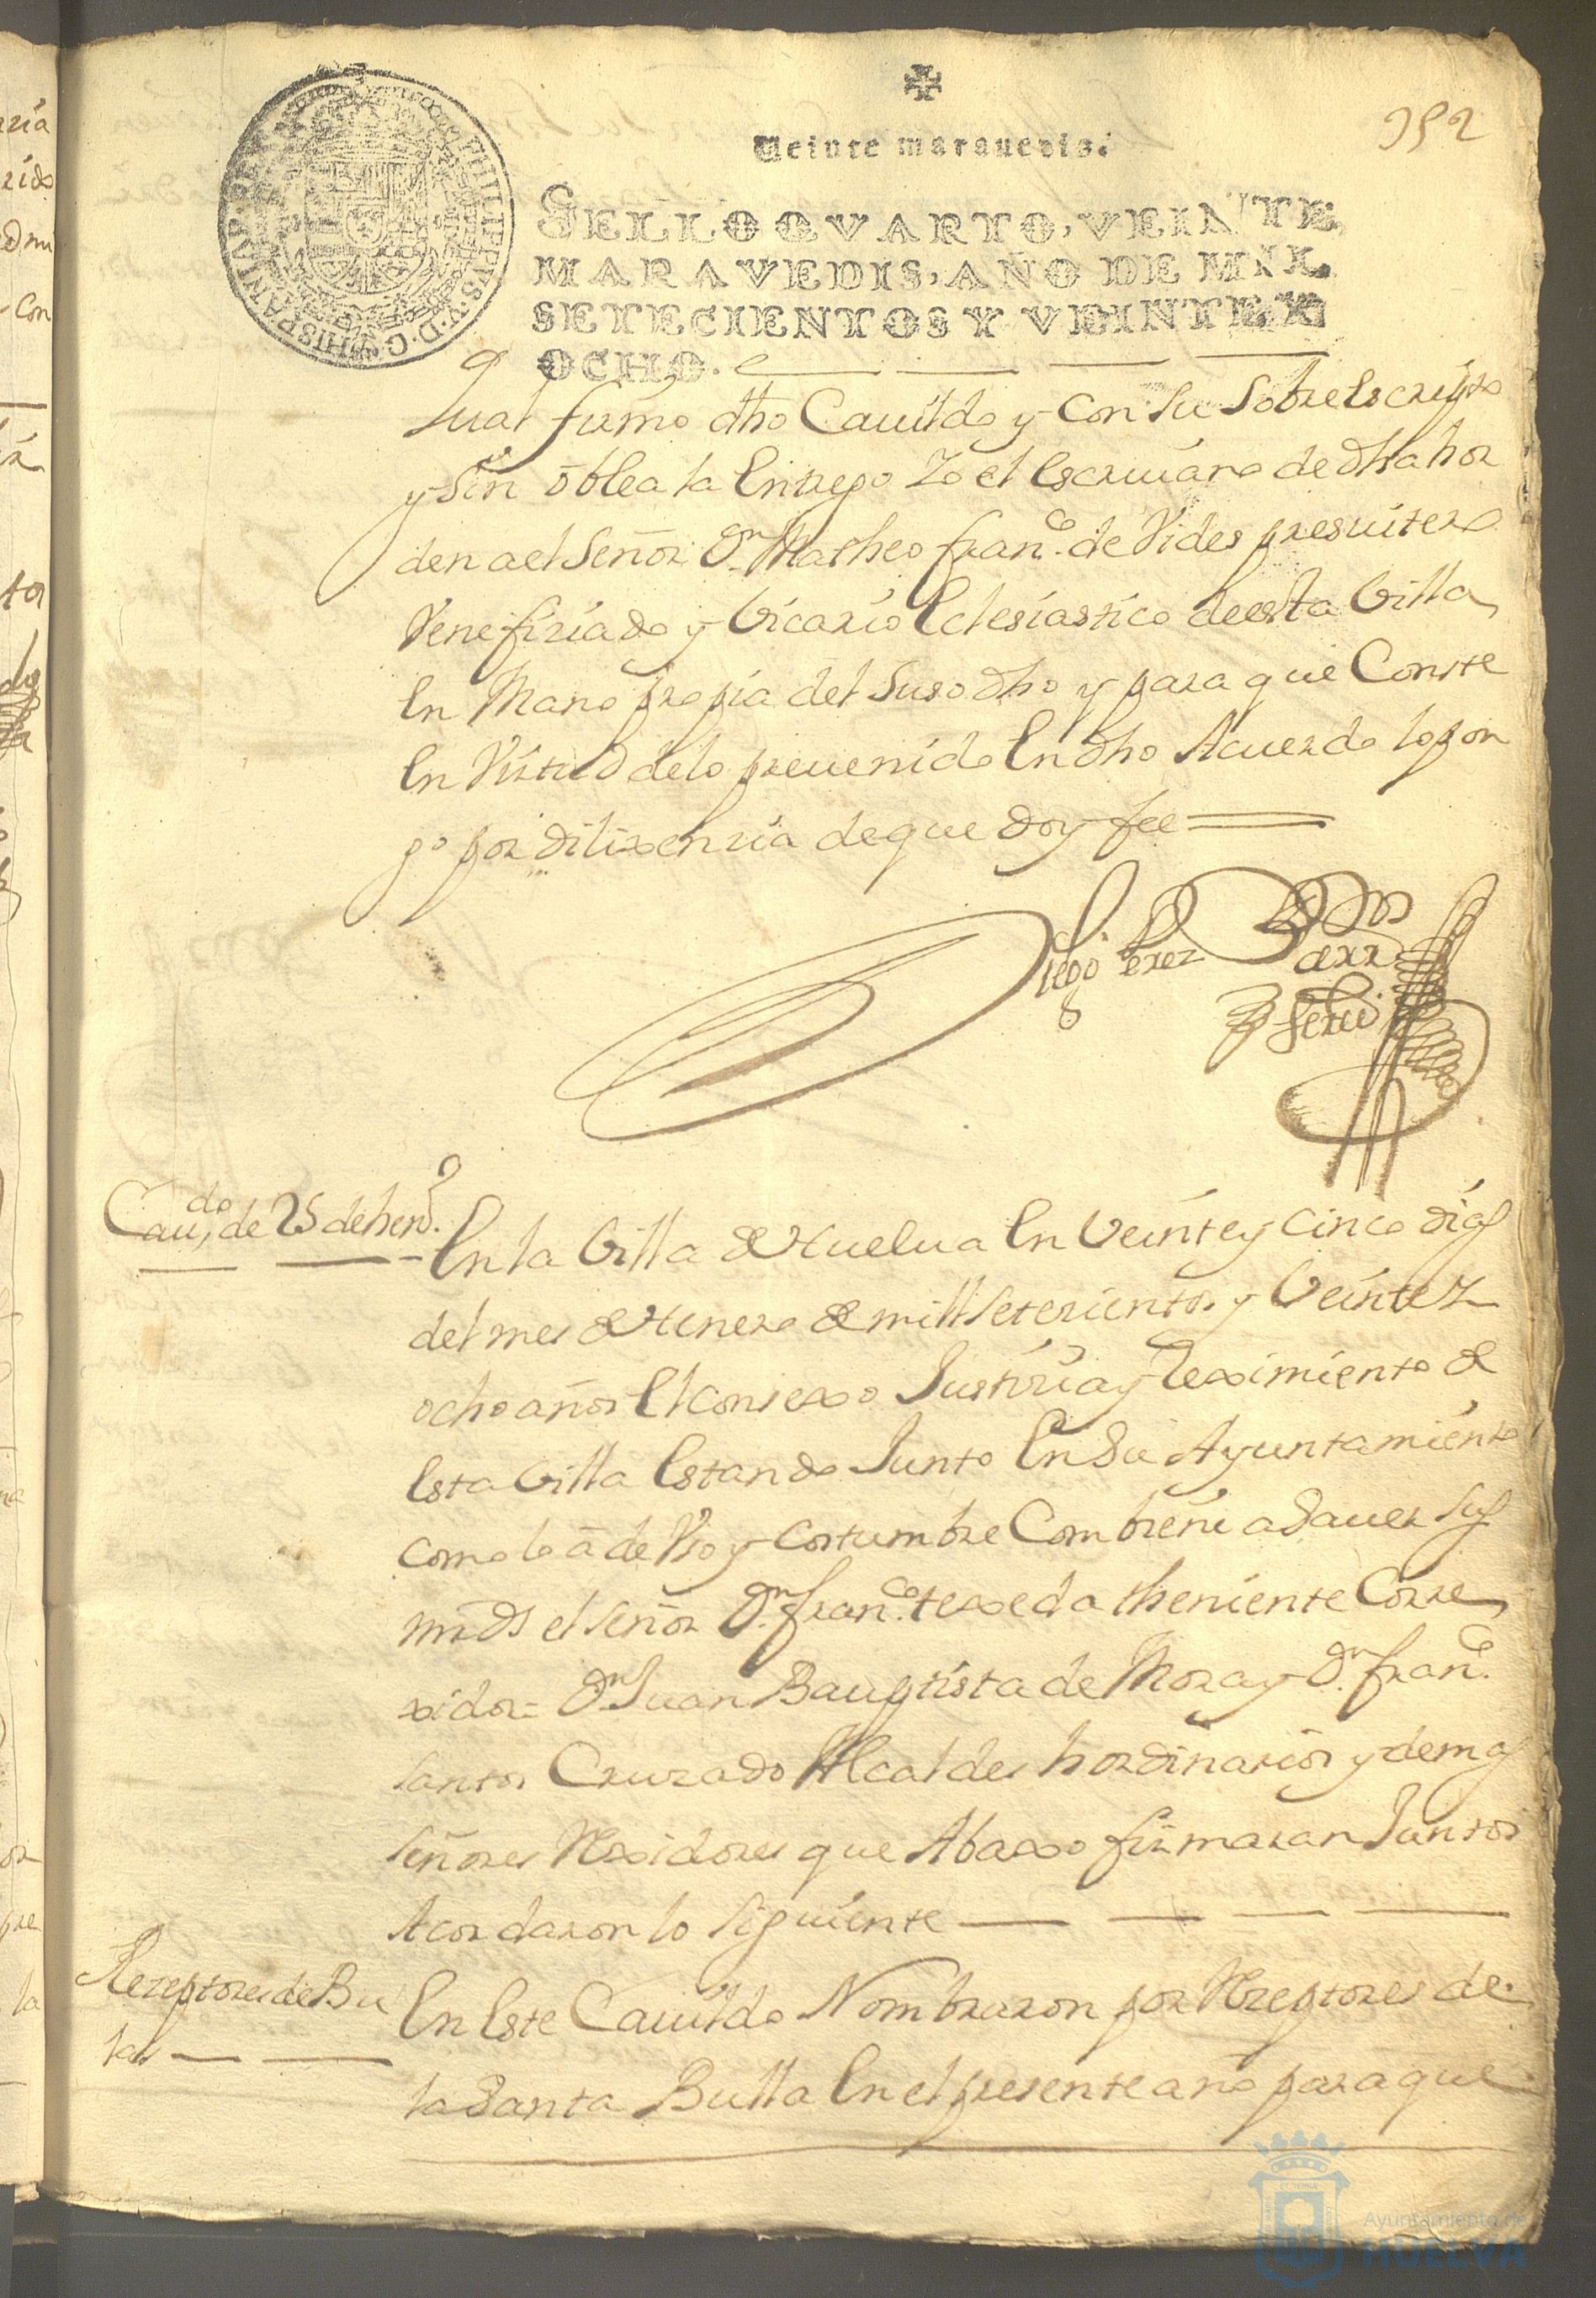 ✠
Veinte maravedis.
952
SELLO QVARTO, VEINTE
MARAVEDIS, AÑO DE MIL
SETECIENTOS Y VEINTE Y
OCHO.
PHILIPPUS V. D. G. HISPANIAR. REX
qual firmo dho Cauildo y con su sobreescripto
y sin oblea la Entrego Yo el Escriuano de dha hor
den a el Señor Dn. Matheo Franco. de Vides presuitero
Venefiziado y Vicario Eclesiastico de esta Villa
En Mano propia del Suso dho y para que Conste
En Virtud de lo preuenido En dho Acuerdo lo pon
go por dilixenzia de que doy fee
Diego Perez
Cauido. de 25 de heno.
En la Villa de Huelua En Veinte y Cinco dias
del mes de Henero de mill setezientos y Veinte Y
ocho años El Consexo Justizia y Reximiento de
Esta Villa Estando Junto En Su Ayuntamiento
como lo a de Vso y Costumbre Combiene a Sauer sus
mrds el señor Dn. Franco. texeda theniente Corre
xidor = Dn. Juan Bauptista de Mora y Dn. Franco.
santos Cruzado Alcaldes hordinarios y demas
señores Rexidores que Abaxo firmaran Juntos
Acordaron lo siguiente
Rezeptores de Bu
las
En Este Cauildo Nombraron por Rzeptores de
la Santa Bulla En el presente año para que
Ayuntamiento de
HUELVA